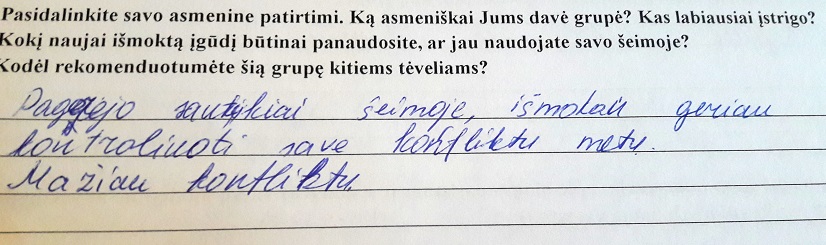 Pasidalinkite savo asmenine patirtimi. Ką asmeniškai Jums davė grupė? Kas labiausiai įstrigo?
Kokį naujai išmoktą įgūdį būtinai panaudosite, ar jau naudojate savo šeimoje?
Kodėl rekomenduotumėte šią grupę kitiems tėveliams?
Pagerėjo santykiai šeimoje, išmokau geriau
kontroliuoti save konfliktų metu.
Mažiau konfliktų